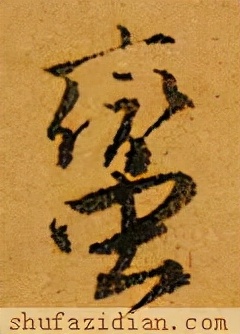 蠻
shufazidian.com